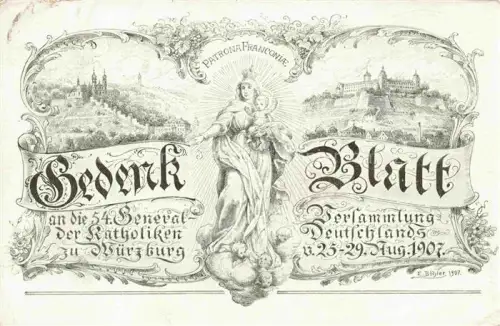 PATRONA FRANCONIÆ
Gedenk Blatt
an die 54. General- Versammlung
der Katholiken Deutschlands
zu Würzburg v. 25-29. Aug. 1907.